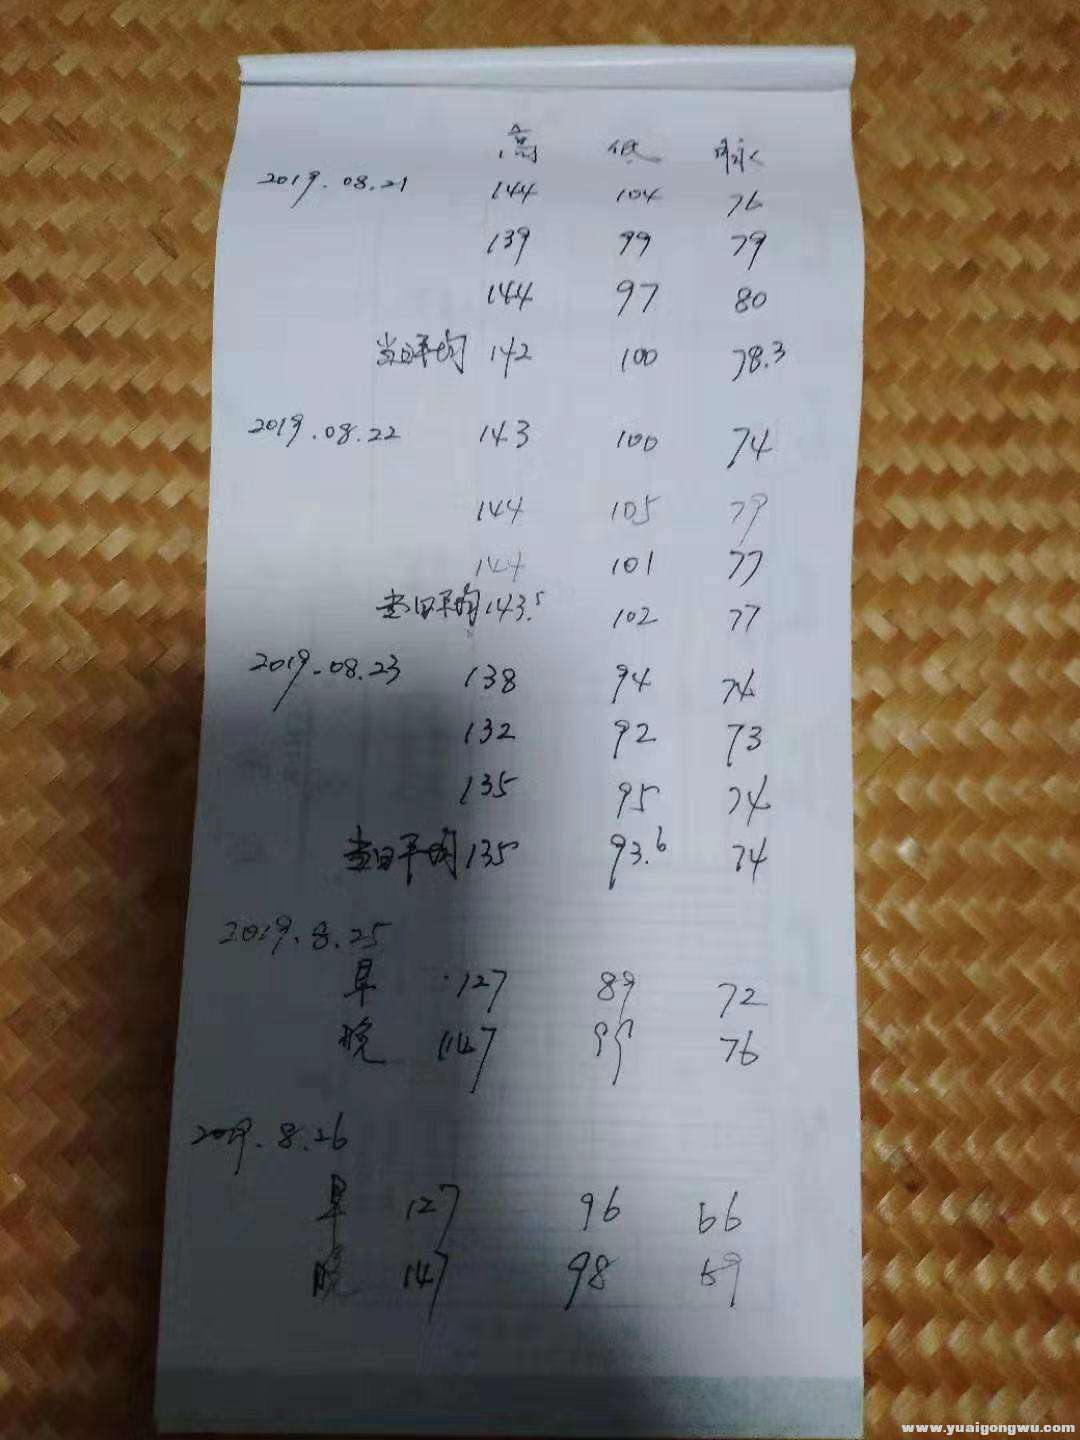 高 低 脉
2019.08.21 144 104 76
139 99 79
144 97 80
当日平均 142 100 78.3
2019.08.22 143 100 74
144 105 79
144 101 77
当日平均 143.5 102 77
2019.08.23 138 94 74
132 92 73
135 95 74
当日平均 135 93.6 74
2019.8.25
早 127 89 72
晚 147 99 76
2019.8.26
早 127 96 66
晚 147 98 69
www.yuaigongwu.com